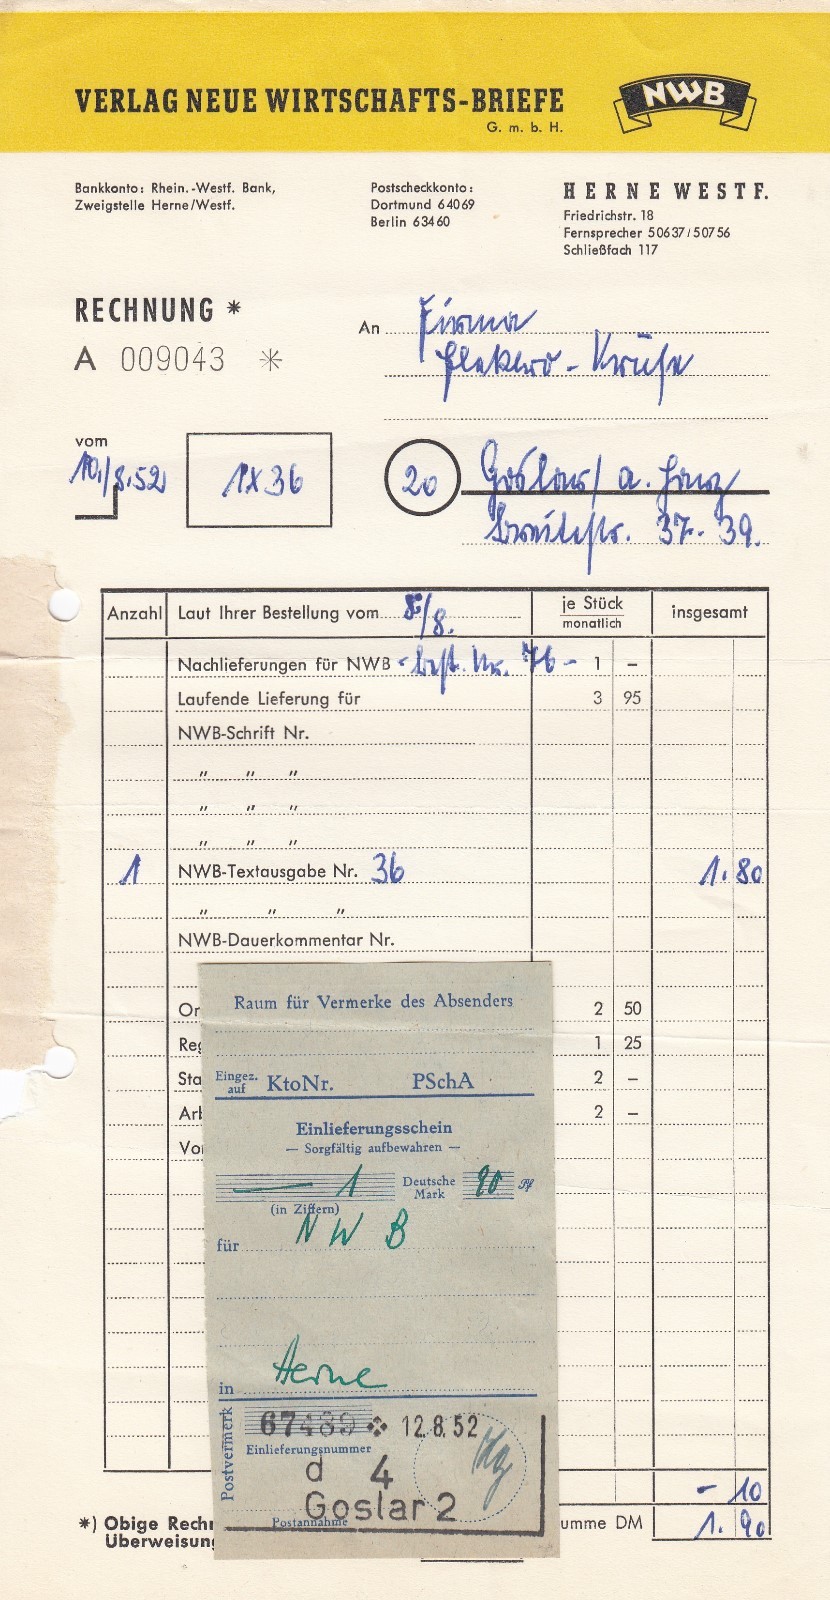 VERLAG NEUE WIRTSCHAFTS-BRIEFE
G. m. b. H.
NWB
Bankkonto: Rhein.-Westf. Bank,
Zweigstelle Herne/Westf.
Postscheckkonto:
Dortmund 64069
Berlin 63460
HERNE WESTF.
Friedrichstr. 18
Fernsprecher 50637/50756
Schließfach 117
RECHNUNG *
A 009043 *
An Firma
Elektro-Kruse
vom
10./8.52
1X36
20 Goslar/ a. Harz
Breitestr. 37-39.
Anzahl Laut Ihrer Bestellung vom 8./8. je Stück monatlich insgesamt
Nachlieferungen für NWB - Best. Nr. 76 - 1 –
Laufende Lieferung für 3 95
NWB-Schrift Nr.
" " "
" " "
" " "
1 NWB-Textausgabe Nr. 36 1.80
" " "
NWB-Dauerkommentar Nr.
Or 2 50
Reg 1 25
Sta 2 –
Arb 2 –
Vo
Raum für Vermerke des Absenders
Eingez. auf KtoNr. PSchA
Einlieferungsschein
— Sorgfältig aufbewahren —
— 1 Deutsche Mark 90 Pf
(in Ziffern)
für NWB
in Herne
Postvermerk
67489 12.8.52
Einlieferungsnummer
d 4
Goslar 2
Postannahme
- 10
*) Obige Rechn
Überweisung
umme DM 1.90